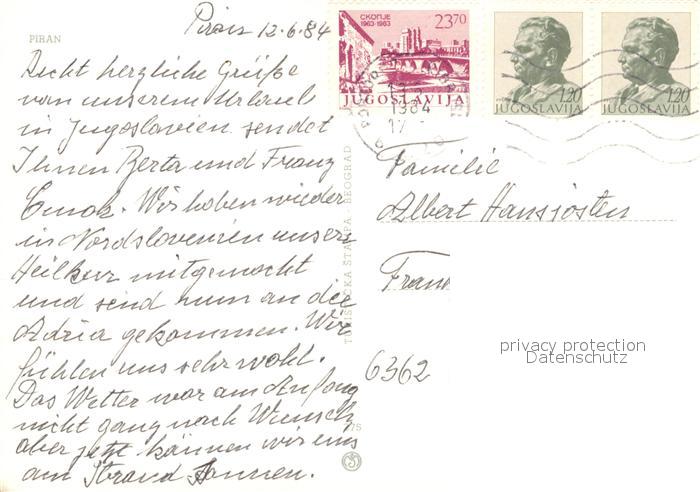 PIRAN
Piran 12.6.84
Recht herzliche Grüße
von unserem Urlaub
in Jugoslavien sendet
Ihnen Berta und Franz
Wir haben wieder
in Nordslovenien unsere
Heilkur mitgemacht
und send nun an die
Adria gekommen. Wir
fühlen uns sehr wohl.
Das Wetter war am Anfang
nicht ganz nach Wunsch
aber jetzt können wir uns
am Strand sonnen.
TURISTIČKA ŠTAMPA BEOGRAD
СКОПЈЕ
1963-1983
23.70
JUGOSLAVIJA
1.20
JUGOSLAVIJA
1.20
JUGOSLAVIJA
1984
17
Familie
Albert Hansjosten
Fran
6362
privacy protection
Datenschutz